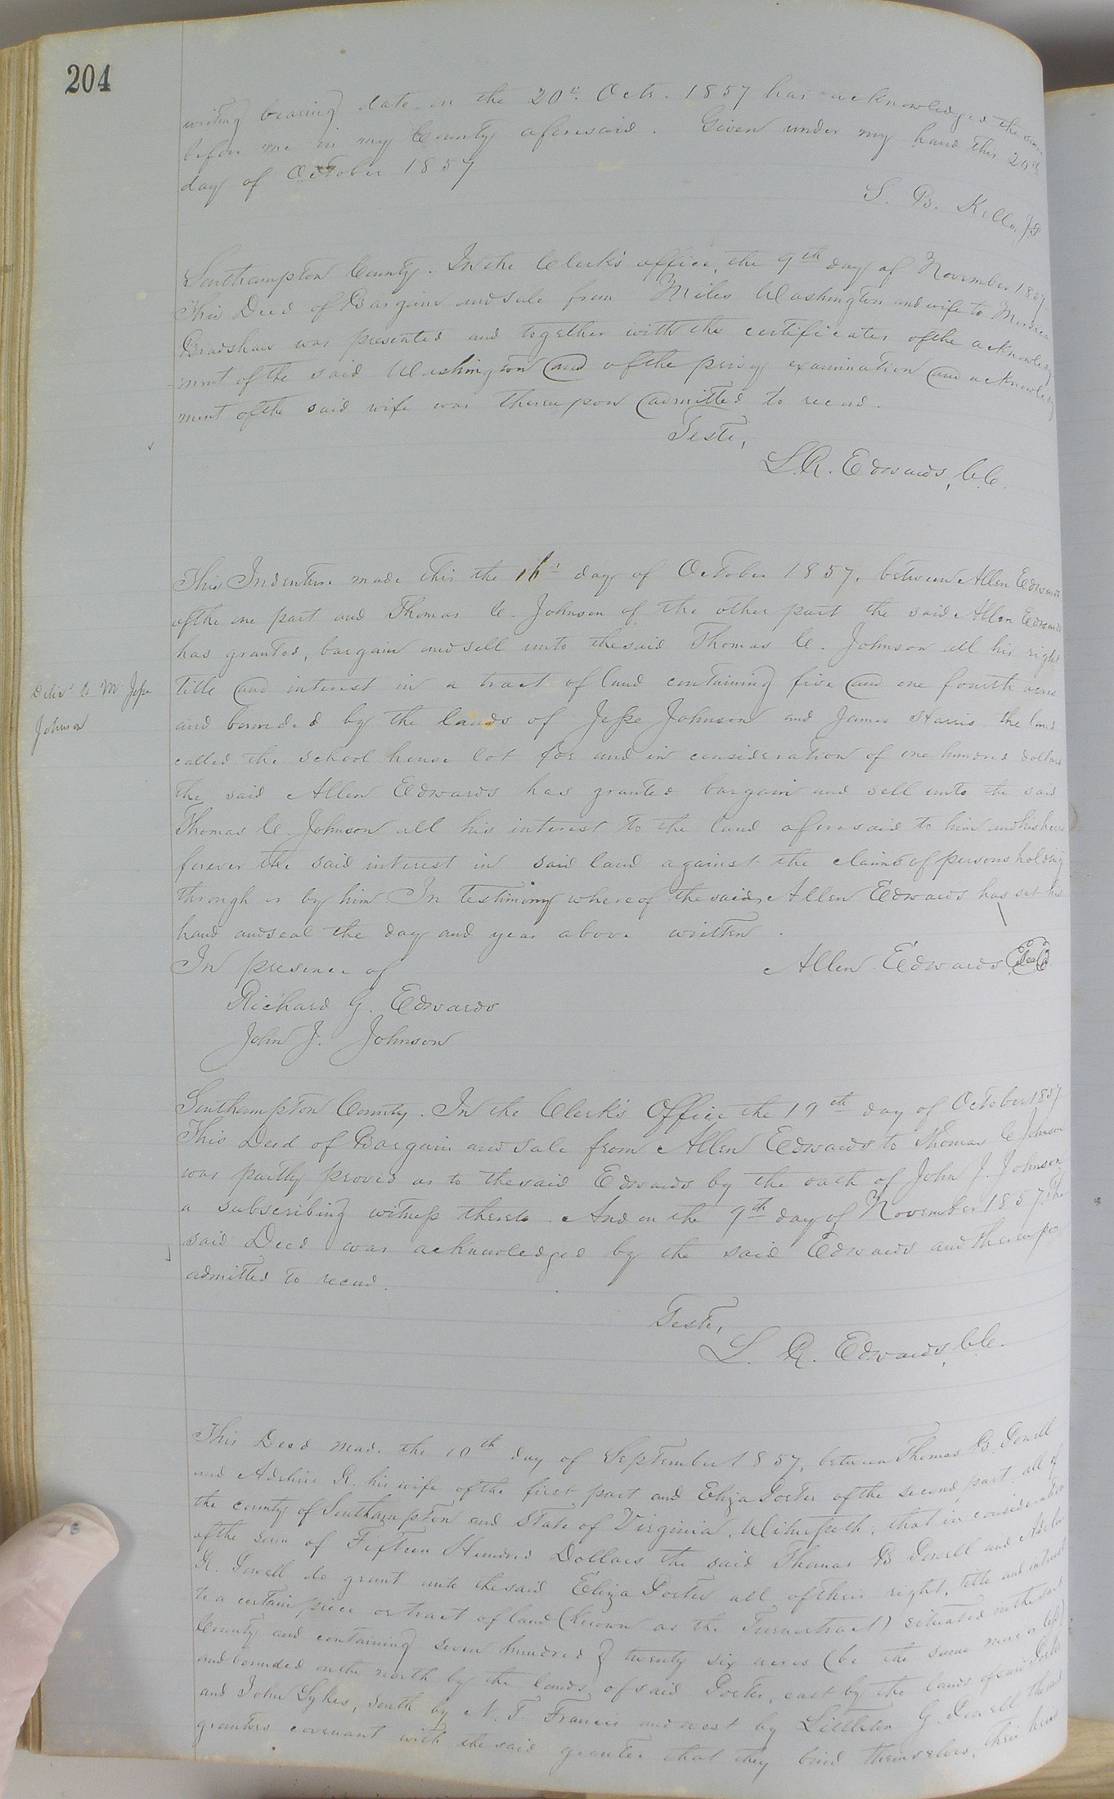 204
writing bearing date on the 20th Octr. 1857 has acknowledged the same
before me in my County aforesaid. Given under my hand this 20th
day of October 1857
S. B. Kello, JP
Southampton County. In the Clerk's office, the 9th day of November 1857
This Deed of Bargain and sale from Miles Washington and wife to
Bradshaw was presented and together with the certificates of the acknowledg
ment of the said Washington and of the privy examination and acknowledg
ment of the said wife was thereupon admitted to record.
Teste,
L. R. Edwards, C.C.
This Indenture made this the 16th day of October 1857, between Allen Edwards
of the one part and Thomas C. Johnson of the other part the said Allen Edwards
has granted, bargain and sell unto the said Thomas C. Johnson all his right
Deliv'd to Mr Jesse
title and interest in a tract of land containing five and one fourth acres
Johnson
and bounded by the lands of Jesse Johnson and James Harris the land
called the school house lot for and in consideration of one hundred dollars
the said Allen Edwards has granted bargain and sell unto the said
Thomas C. Johnson all his interest to the land aforesaid to him and his heirs
forever the said interest in said land against the claims of persons holding
through or by him In testimony whereof the said Allen Edwards has set his
hand and seal the day and year above written.
In presence of Allen Edwards Seal
Richard G. Edwards
John J. Johnson
Southampton County. In the Clerk's Office the 19th day of October 1857
This Deed of Bargain and sale from Allen Edwards to Thomas C Johnson
was partly proved as to the said Edwards by the oath of John J. Johnson
a subscribing witness thereto. And on the 9th day of November 1857 the
said Deed was acknowledged by the said Edwards and thereupo
admitted to record.
Teste,
L. R. Edwards, C.C.
This Deed made the 10th day of September 1857, between Thomas B. Sewell
and Adeline R. his wife of the first part and Eliza Porter of the second part, all of
the county of Southampton and State of Virginia, Witnesseth, that in consideration
of the sum of Fifteen Hundred Dollars the said Thomas B Sewell and
R. Sewell do grant unto the said Eliza Porter all of their right, title and interest
to a certain piece or tract of land (known as the Turner tract) situated in the said
County and containing seven hundred & twenty six acres (be the same more or less)
and bounded on the north by the lands of said Porter, east by the lands of said Porter
and John Sykes, South by N. T. Francis and west by Littleton G. Sewell the said
grantors covenant with the said grantee that they bind themselves, their heirs